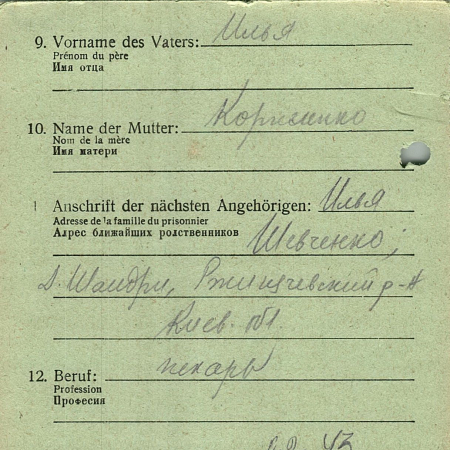 9. Vorname des Vaters: Илья
Prénom du père
Имя отца
10. Name der Mutter:
Nom de la mère
Имя матери
Anschrift der nächsten Angehörigen: Илья
Adresse de la famille du prisonnier
Адрес ближайших родственников
Шевченко;
д. Шандри, Ржищевский р-н
Киев. обл.
12. Beruf: пекарь
Profession
Професия
43